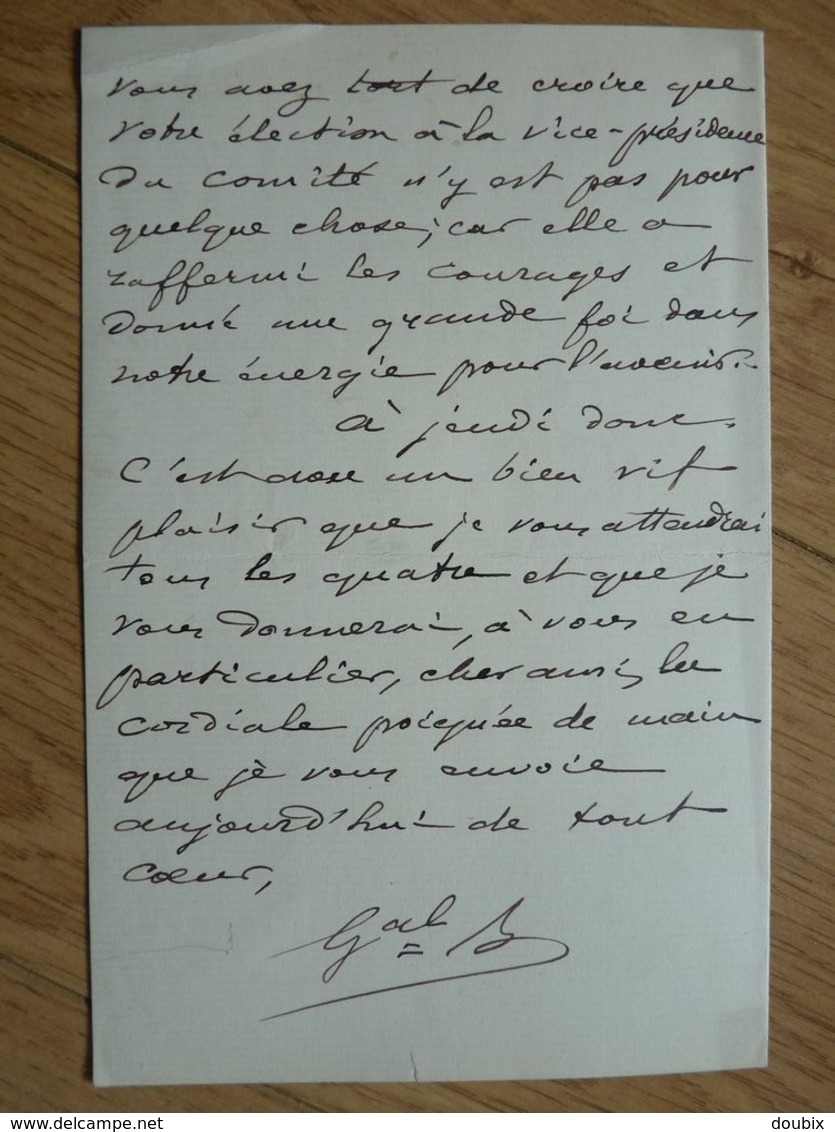 vous avez tort de croire que
votre élection à la vice-présidence
du comité n'y est pas pour
quelque chose; car elle a
raffermi les courages et
donné une grande foi dans
notre énergie pour l'avenir.
à jeudi donc.
C'est avec un bien vif
plaisir que je vous attendrai
tous les quatre et que je
vous donnerai, à vous en
particulier, cher ami, la
cordiale poignée de main
que je vous envoie
aujourd'hui de tout
cœur,
Gal B
www.delcampe.net
doubix